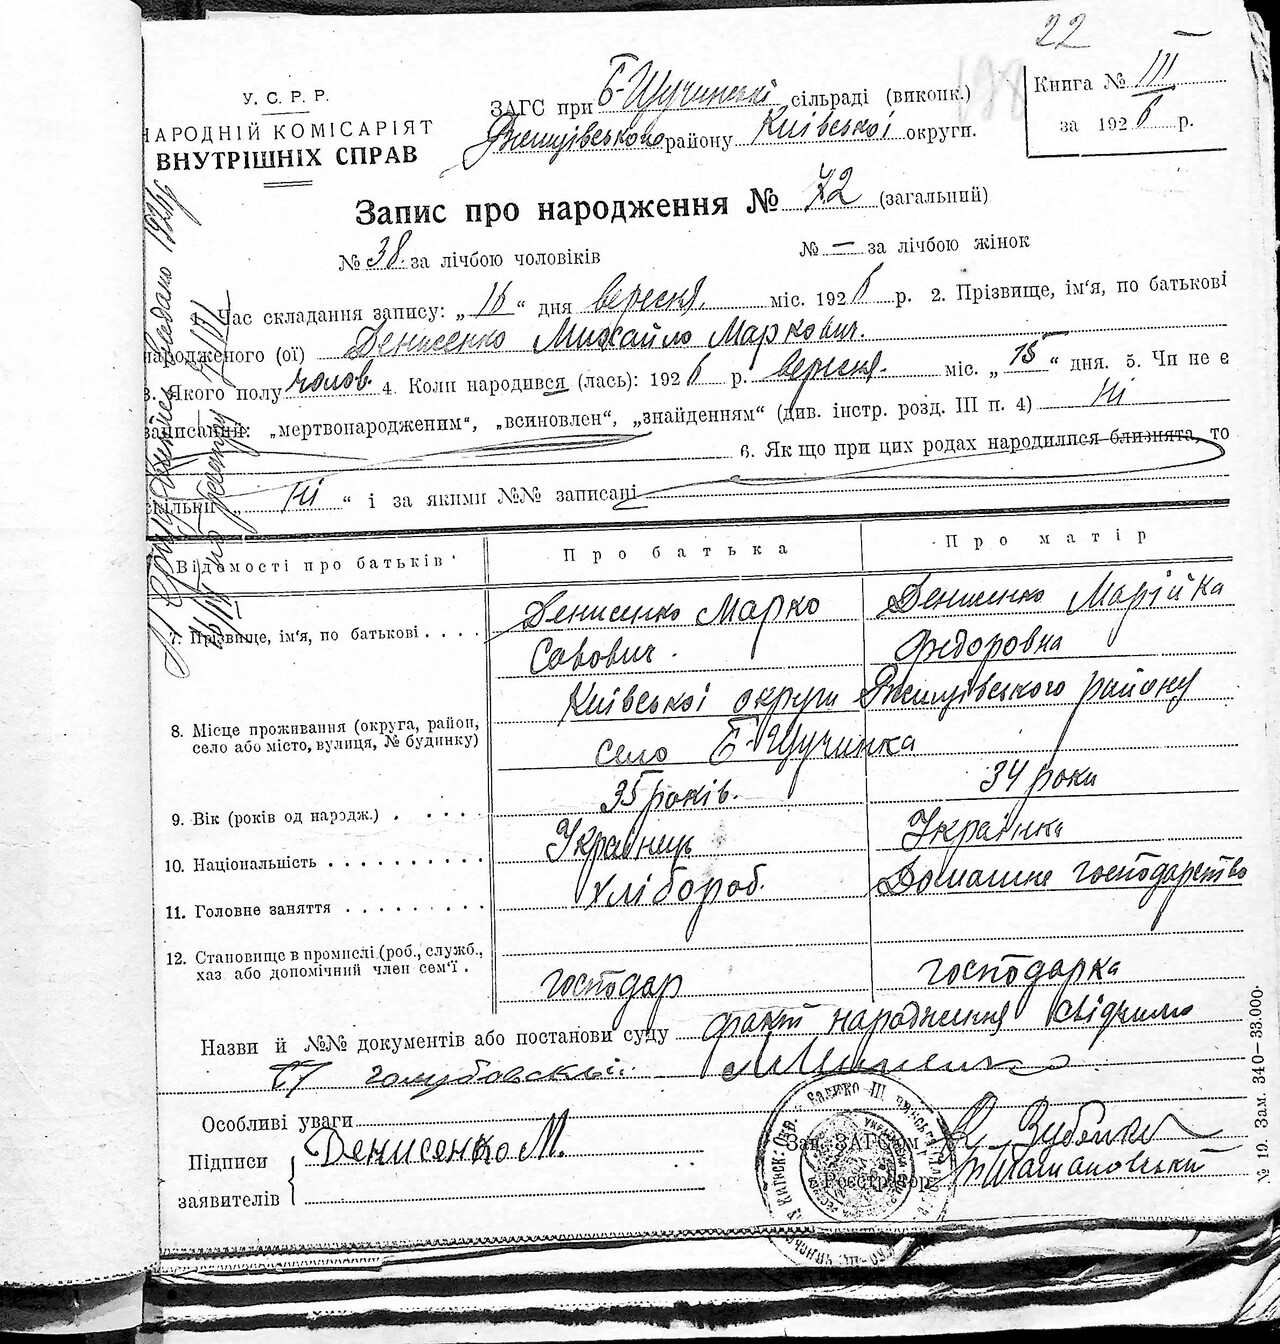 22
У. С. Р. Р.
НАРОДНІЙ КОМІСАРІЯТ
ВНУТРІШНІХ СПРАВ
ЗАГС при Б-Щучинські сільраді (виконк.)
Ржищівського району Київської округи.
Книга № III
за 1926 р.
Запис про народження № 72 (загальний)
№ 38. за лічбою чоловіків № — за лічбою жінок
Час складання запису: „16“ дня вересня. міс. 1926 р. 2. Прізвище, ім'я, по батькові
народженого (ої) Денисенко Михайло Маркович.
3. Якого полу чолов. 4. Коли народився (лась): 1926 р. вересня. міс. „15“ дня. 5. Чи не є
записаний: „мертвонародженим“, „всиновлен“, „знайденням“ (див. інстр. розд. III п. 4) Ні
6. Як що при цих родах народилися близнята, то
скільки „ Ні “ і за якими №№ записані
Відомості про батьків Про батька Про матір
7. Прізвище, ім'я, по батькові . . . . Денисенко Марко Савович. Денисенко Марійка Федоровна
8. Місце проживання (округа, район, село або місто, вулиця, № будинку) Київської округи Ржищівського району
село Б-Щучинка
9. Вік (років од народж.) . . . . . 35 років. 34 роки
10. Національність . . . . . . . . . . Українець Українка
11. Головне заняття . . . . . . . . . Хлібороб. Домашне господарство
12. Становище в промислі (роб., служб., хаз або допомічний член сем'ї . господар господарка
Назви й №№ документів або постанови суду факт народження свідчимо
голубовський
Особливі уваги
Підписи заявителів Денисенко М.
Зав. ЗАГС'ом
Реєстратор
№ 19. Зам. 340—33.000.